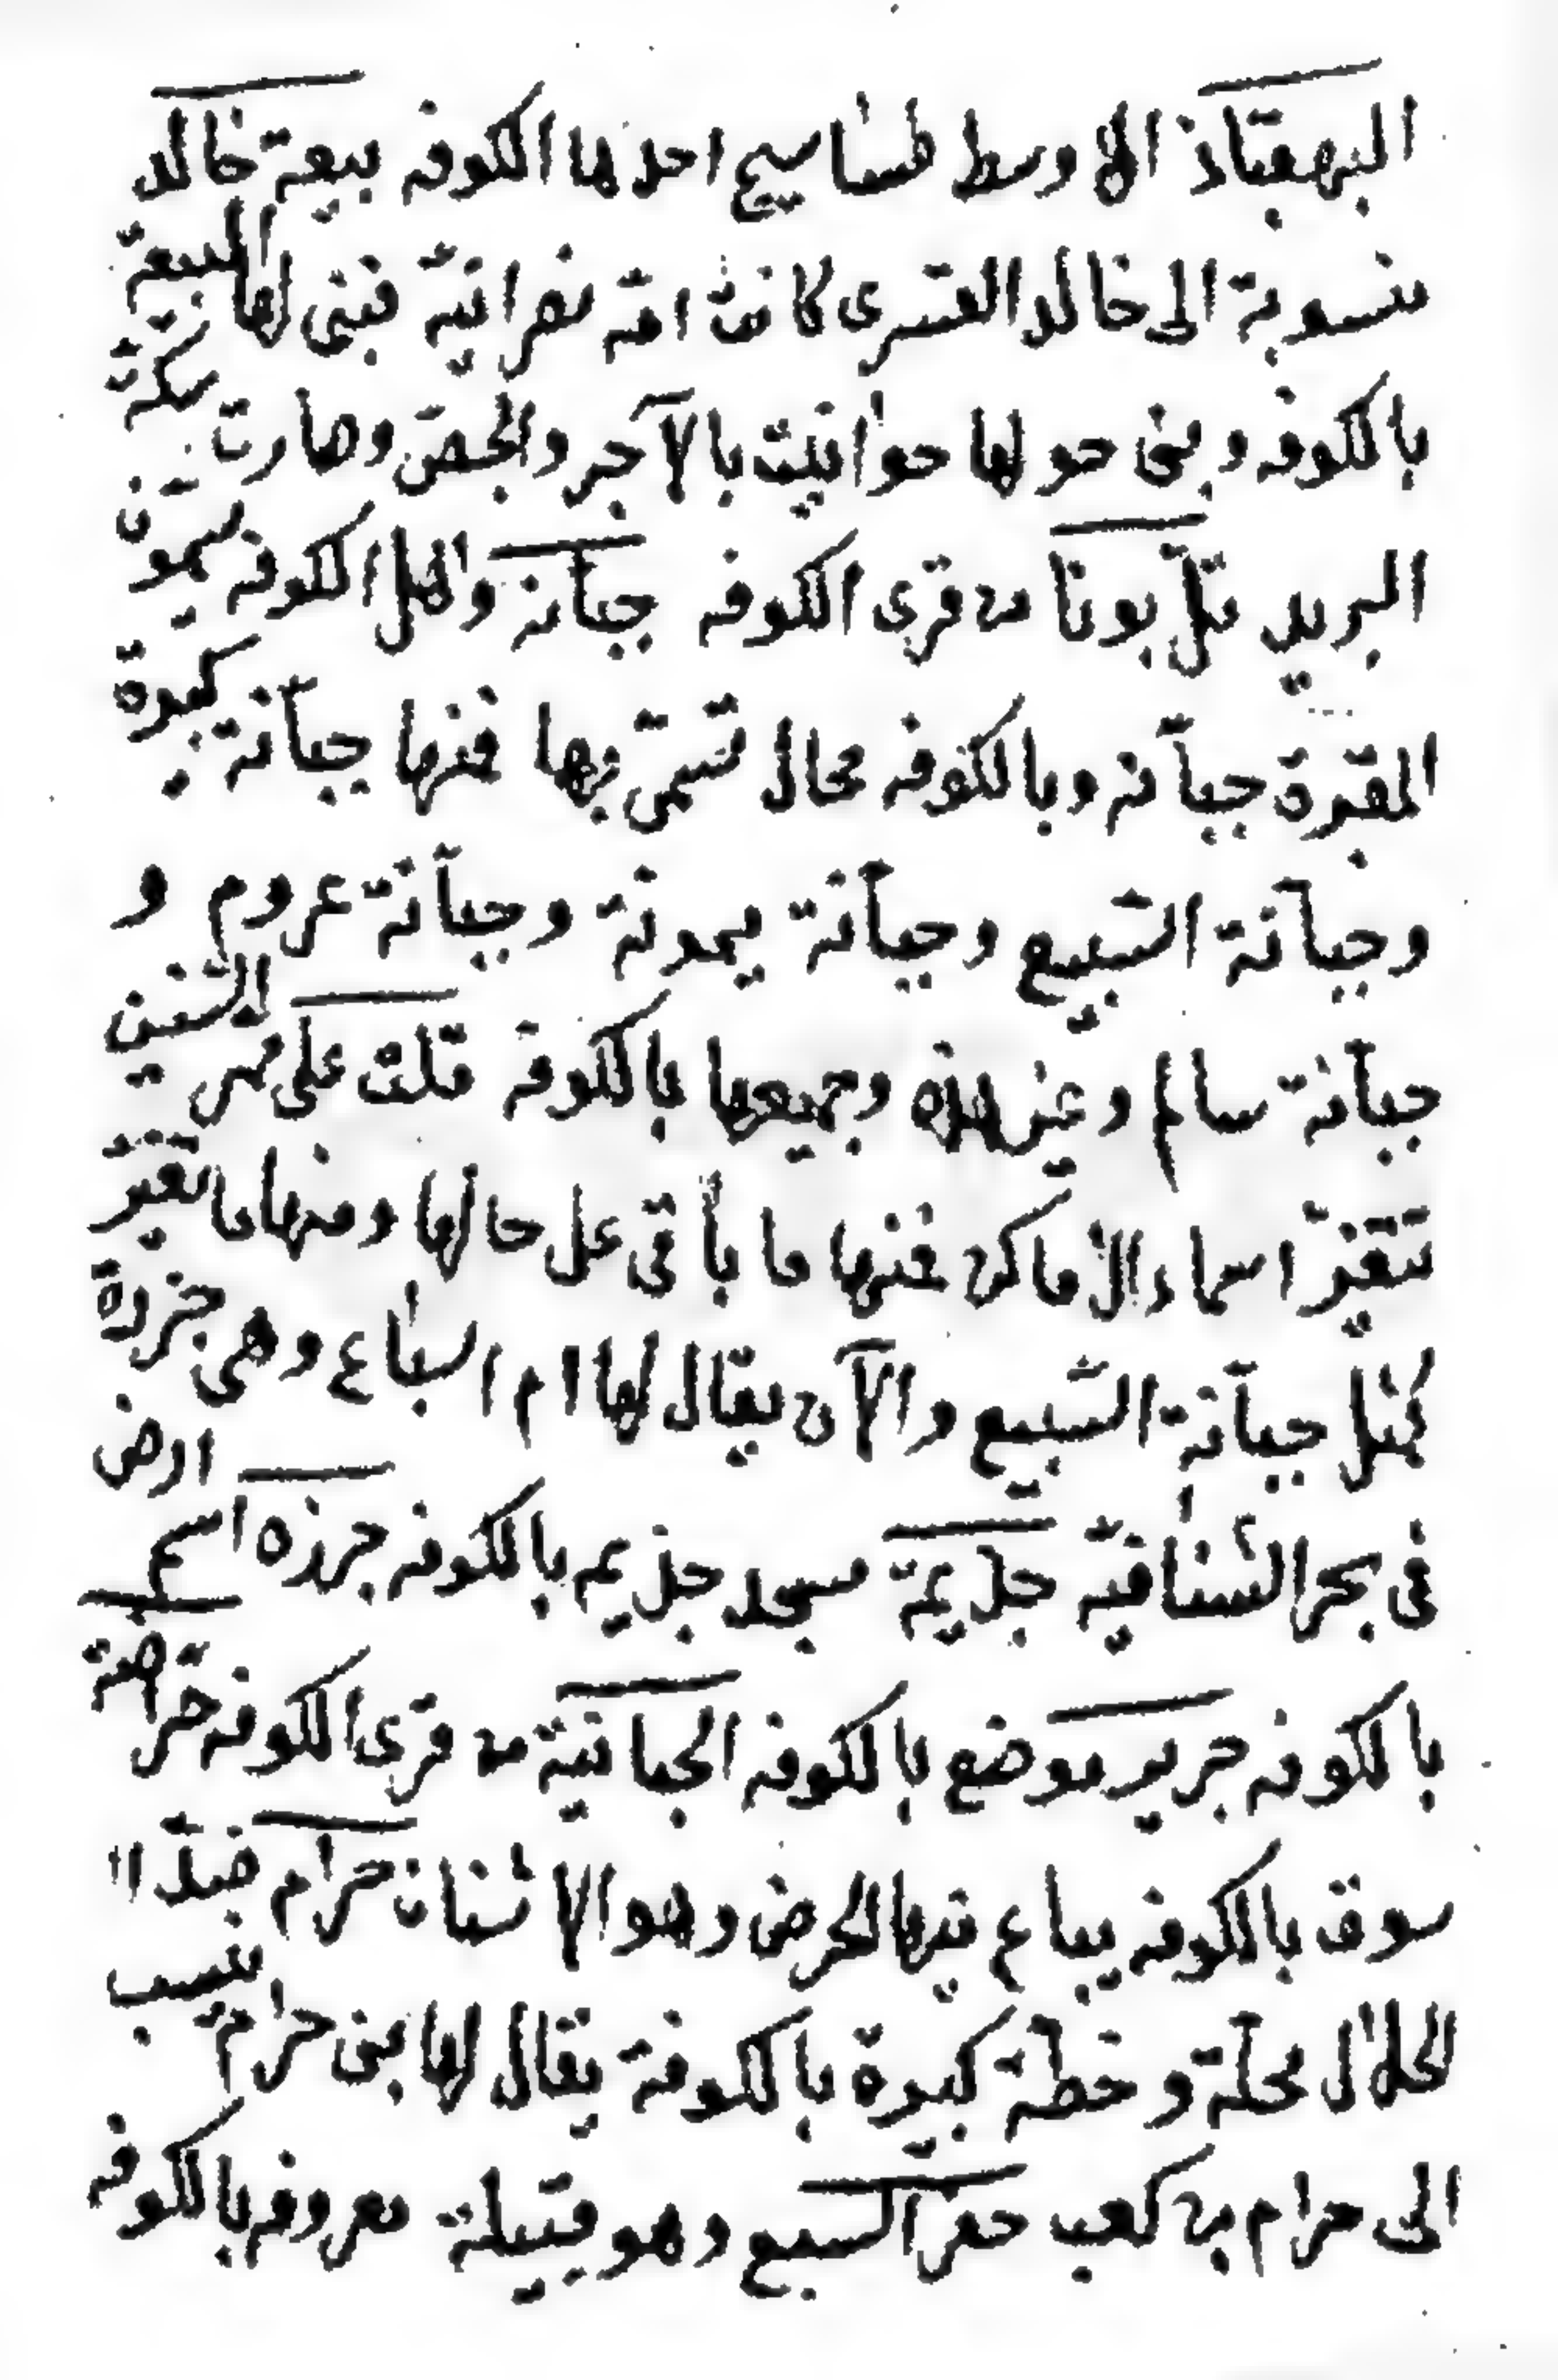 البهقباذ الاوسط طساسيج احدها الكوفه بيعة خالد
منسوبة الى خالد القسرى كانت امّه نصرانيّه فبنى لها البيعة
بالكوفه وبنى حولها حوانيت بالآجر والجصّ وصارت سكّة
البريد تلّ بونا من قرى الكوفه جبّانه واهل الكوفه يسمّون
المقبرة جبّانه وبالكوفه محال تسمّى بها فمنها جبّانة كبيرة
وجبّانة السّبيع وجبّانة يمونة وجبّانة عروم و
جبّانة سالم وغير هذه وجميعها بالكوفة قلت على ممر السّنين
تتغيّر اسماء الاماكن فمنها ما باقى على حالها ومنها ما تغيّر
كمثل جبّانة السّبيع والآن يقال لها ام السباع وهى جزرة
فى بحر الشنافيّه جذيمة مسجد جذيم بالكوفه جرزه اسم ارض
بالكوفه جرير موضع بالكوفه الجبانيّة من قرى الكوفه حرّاضة
سوق بالكوفه يباع فيها الحرض وهو الاشنان حرام ضدّ ا
لحلال محلّة وخطّة كبيرة بالكوفة يقال لها بنى حرام ينسب
الى حرام بن كعب حفر السبيع وهو قبيلة معروفه بالكوفه